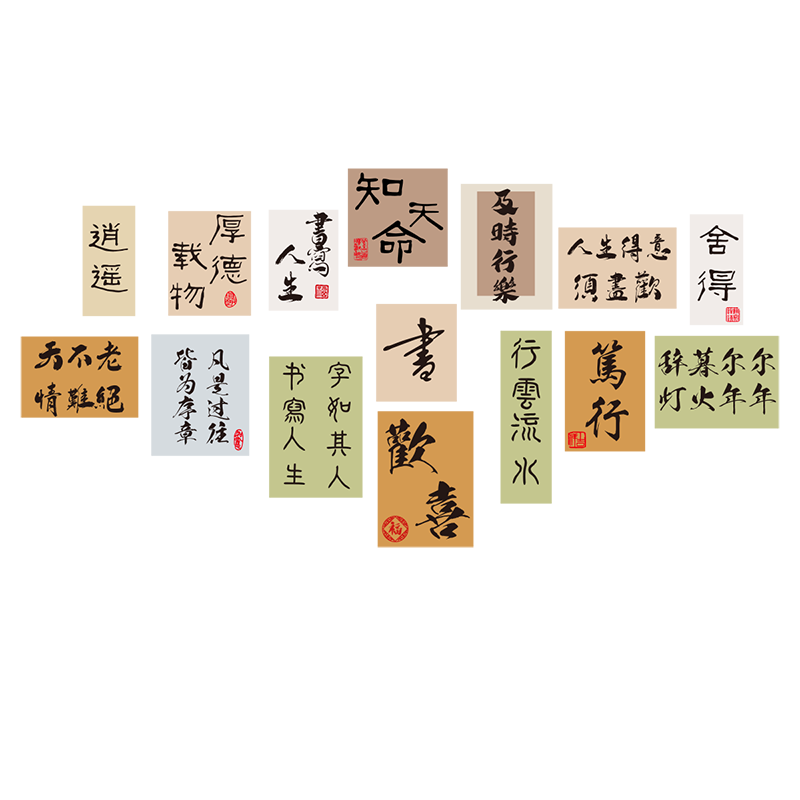 逍遥
厚德
载物
書寫
人生
知
天命
及時行樂
人生得意
須盡歡
舍得
天不老
情難絕
凡是过往
皆为序章
字如其人
书寫人生
書
歡
喜
福
行雲流水
篤行
辞暮尔尔
灯火年年